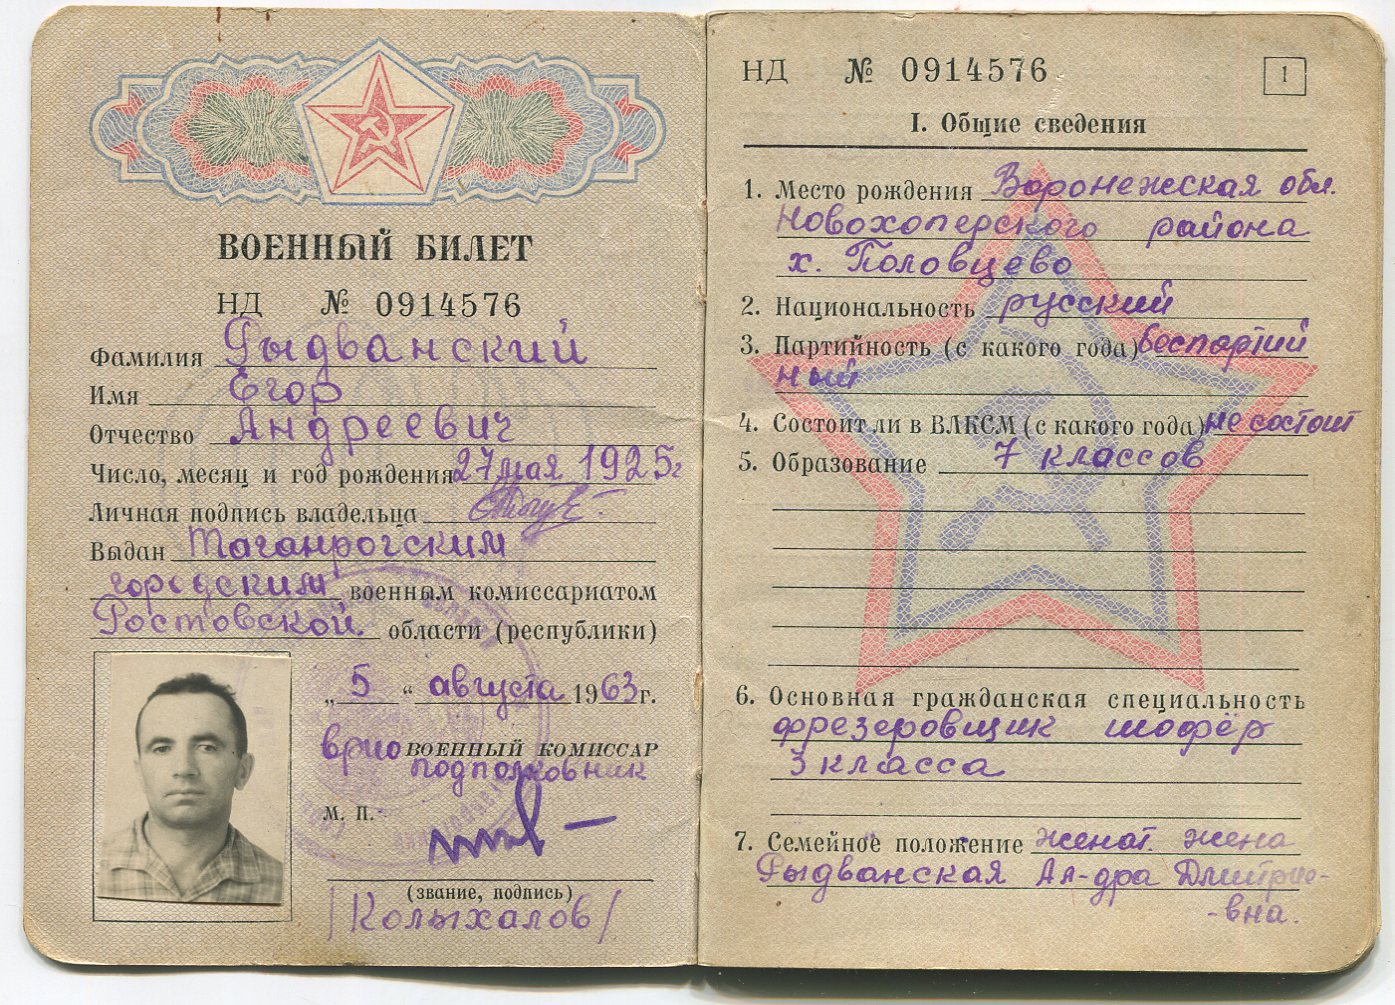 ВОЕННЫЙ БИЛЕТ
НД № 0914576
Фамилия Рыдванский
Имя Егор
Отчество Андреевич
Число, месяц и год рождения 27 мая 1925 г
Личная подпись владельца
Выдан Таганрогским
городским военным комиссариатом
Ростовской области (республики)
„5“ августа 1963 г.
врио ВОЕННЫЙ КОМИССАР
подполковник
М. П.
(звание, подпись)
/Колыхалов/
НД № 0914576
1
I. Общие сведения
1. Место рождения Воронежская обл.
Новохоперского района
х. Половцево
2. Национальность русский
3. Партийность (с какого года) беспартий
ный
4. Состоит ли в ВЛКСМ (с какого года) не состоит
5. Образование 7 классов
6. Основная гражданская специальность
фрезеровщик шофёр
3 класса
7. Семейное положение женат. жена
Рыдванская Ал-дра Дмитрие-
-вна.